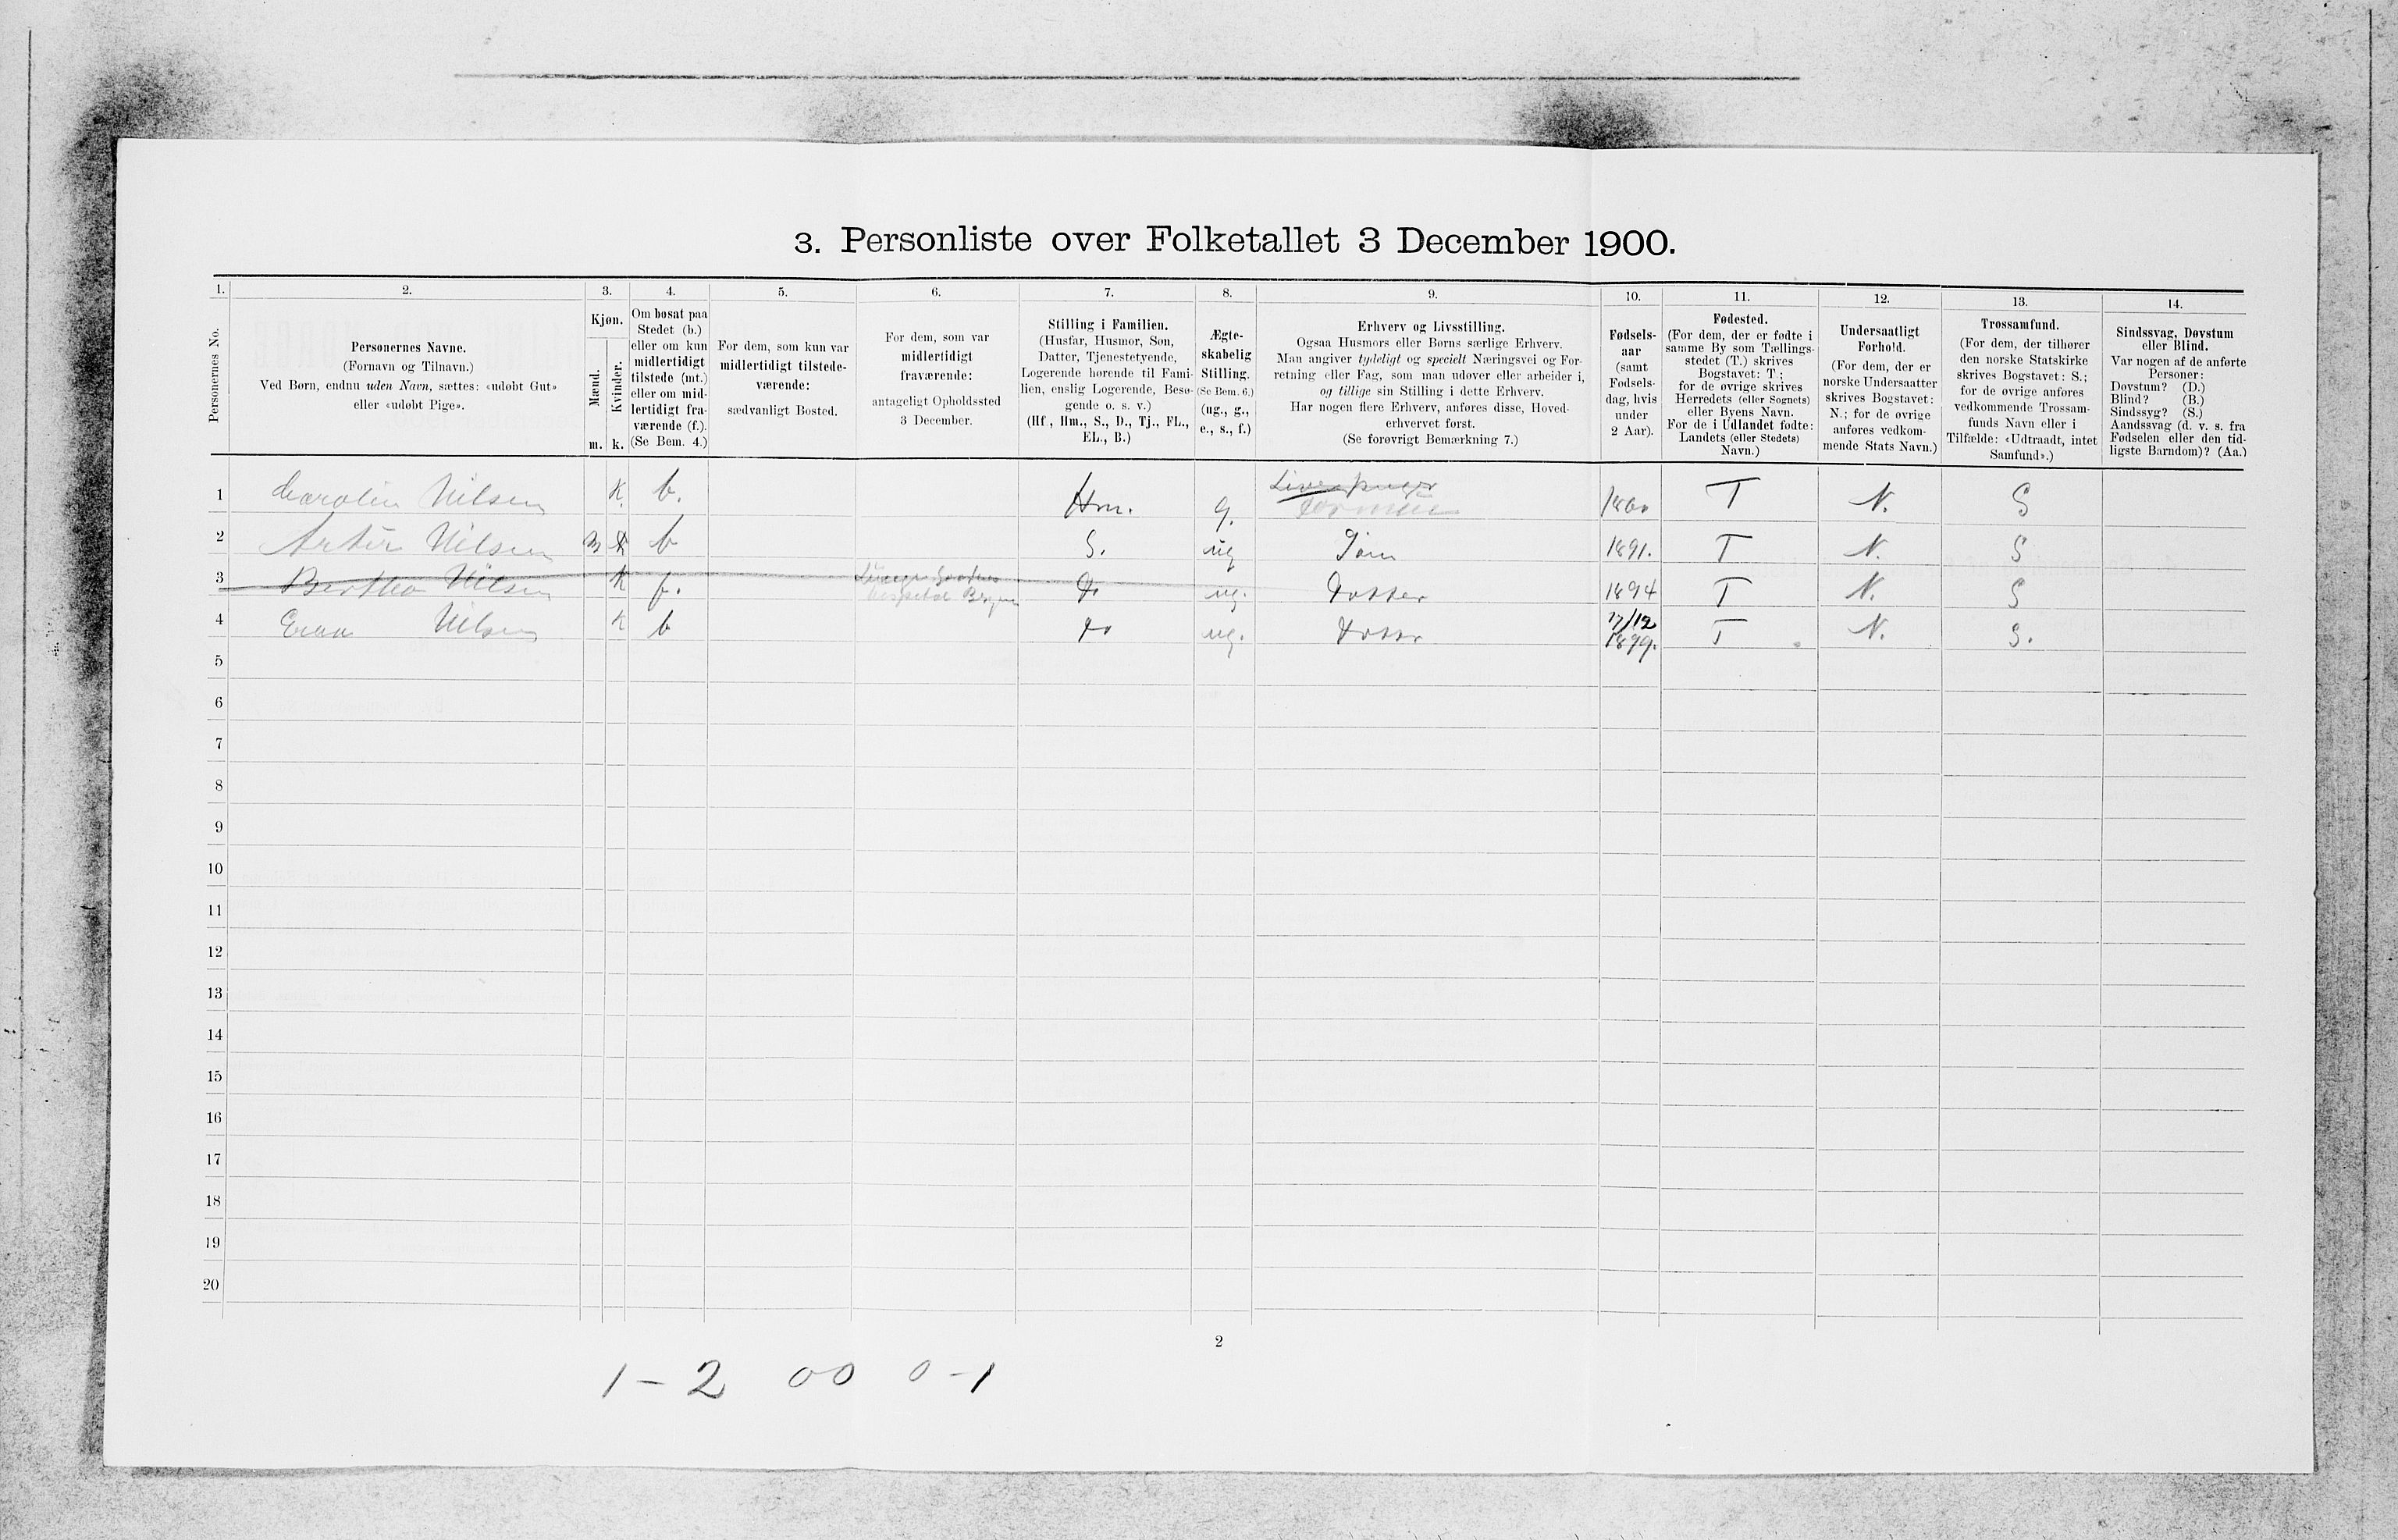 3. Personliste over Folketallet 3 December 1900.
1. 2. 3. 4. 5. 6. 7. 8. 9. 10. 11. 12. 13. 14.
Personernes No.
Personernes Navne.
(Fornavn og Tilnavn.)
Ved Børn, endnu uden Navn, sættes: «udøbt Gut»
eller «udøbt Pige».
Kjøn.
Mænd.
Kvinder.
m. k.
Om bosat paa
Stedet (b.)
eller om kun
midlertidigt
tilstede (mt.)
eller om mid-
lertidigt fra-
værende (f.).
(Se Bem. 4.)
For dem, som kun var
midlertidigt tilstede-
værende:
sædvanligt Bosted.
For dem, som var
midlertidigt
fraværende:
antageligt Opholdssted
3 December.
Stilling i Familien.
(Husfar, Husmor, Søn,
Datter, Tjenestetyende,
Logerende hørende til Fami-
lien, enslig Logerende, Besø-
gende o. s. v.)
(Hf., Hm., S., D., Tj., FL.,
EL., B.)
Ægte-
skabelig
Stilling.
(Se Bem. 6.)
(ug., g.,
e., s., f.)
Erhverv og Livsstilling.
Ogsaa Husmors eller Børns særlige Erhverv.
Man angiver tydeligt og specielt Næringsvei og For-
retning eller Fag, som man udøver eller arbeider i,
og tillige sin Stilling i dette Erhverv.
Har nogen flere Erhverv, anføres disse, Hoved-
erhvervet først.
(Se forøvrigt Bemærkning 7.)
Fødsels-
aar
(samt
Fødsels-
dag, hvis
under
2 Aar).
Fødested.
(For dem, der er fødte i
samme By som Tællings-
stedet (T.) skrives
Bogstavet: T.;
for de øvrige skrives
Herredets (eller Sognets)
eller Byens Navn.
For de i Udlandet fødte:
Landets (eller Stedets)
Navn.)
Undersaatligt
Forhold.
(For dem, der er
norske Undersaatter
skrives Bogstavet:
N.; for de øvrige
anføres vedkom-
mende Stats Navn.)
Trossamfund.
(For dem, der tilhører
den norske Statskirke
skrives Bogstavet: S.;
for de øvrige anføres
vedkommende Trossam-
funds Navn eller i
Tilfælde: «Udtraadt, intet
Samfund».)
Sindssvag, Døvstum
eller Blind.
Var nogen af de anførte
Personer:
Døvstum? (D.)
Blind? (B.)
Sindssyg? (S.)
Aandssvag (d. v. s. fra
Fødselen eller den tid-
ligste Barndom)? (Aa.)
1 Carolin Nilsen K b. Hm. g. 1860 T N. S
2 Artur Nilsen M K b S. ug Søn 1891. T N. S
3 Bertha Nilsen K f. D. ug. Dotter 1894 T N. S
4 Erna Nilsen K b D ug. Dotter 17/12 1899. T N. S.
5
6
7
8
9
10
11
12
13
14
15
16
17
18
19
20
2
1 - 2 00 0 - 1